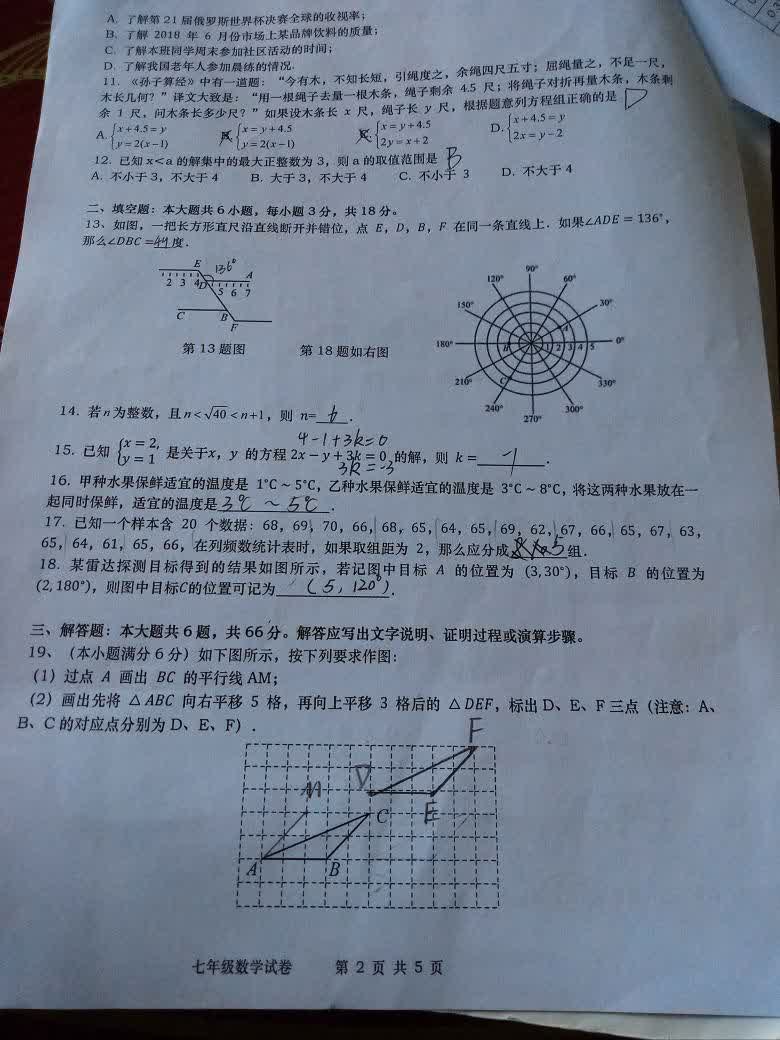 A. 了解第 21 届俄罗斯世界杯决赛全球的收视率；
B. 了解 2018 年 6 月份市场上某品牌饮料的质量；
C. 了解本班同学周末参加社区活动的时间；
D. 了解我国老年人参加晨练的情况.
11. 《孙子算经》中有一道题：“今有木，不知长短，引绳度之，余绳四尺五寸；屈绳量之，不足一尺，
木长几何？”译文大致是：“用一根绳子去量一根木条，绳子剩余 4.5 尺；将绳子对折再量木条，木条剩
余 1 尺，问木条长多少尺？”如果设木条长 x 尺，绳子长 y 尺，根据题意列方程组正确的是 D
A. {x+4.5=y B. {x=y+4.5 C. {x=y+4.5 D. {x+4.5=y
y=2(x-1) y=2(x-1) 2y=x+2 2x=y-2
12. 已知 x<a 的解集中的最大正整数为 3，则 a 的取值范围是 B
A. 不小于 3，不大于 4 B. 大于 3，不大于 4 C. 不小于 3 D. 不大于 4
二、填空题：本大题共 6 小题，每小题 3 分，共 18 分。
13、如图，一把长方形直尺沿直线断开并错位，点 E，D，B，F 在同一条直线上．如果∠ADE = 136°，
那么∠DBC =44度．
E 136° A
2 3 4 D 5 6 7
C B
F
第 13 题图 第 18 题如右图
90°
120° 60°
150° 30°
A
180° B 1 2 3 4 5 0°
C
210° 330°
240° 300°
270°
14. 若 n 为整数，且 n<√40<n+1，则 n= 6 .
4-1+3k=0
15. 已知 {x = 2, y = 1 是关于x，y 的方程 2x − y + 3k = 0 的解，则 k = -1 .
3k=-3
16. 甲种水果保鲜适宜的温度是 1°C ~ 5°C，乙种水果保鲜适宜的温度是 3°C ~ 8°C，将这两种水果放在一
起同时保鲜，适宜的温度是 3℃ ~ 5℃ .
17. 已知一个样本含 20 个数据：68，69，70，66，68，65，64，65，69，62，67，66，65，67，63，
65，64，61，65，66，在列频数统计表时，如果取组距为 2，那么应分成 5 组．
18. 某雷达探测目标得到的结果如图所示，若记图中目标 A 的位置为 (3,30°)，目标 B 的位置为
(2,180°)，则图中目标C的位置可记为 (5，120°) .
三、解答题：本大题共 6 题，共 66 分。解答应写出文字说明、证明过程或演算步骤。
19、（本小题满分 6 分）如下图所示，按下列要求作图：
(1) 过点 A 画出 BC 的平行线 AM；
(2) 画出先将 △ABC 向右平移 5 格，再向上平移 3 格后的 △DEF，标出 D、E、F 三点（注意：A、
B、C 的对应点分别为 D、E、F）.
F
D
M
E
C
A B
七年级数学试卷 第 2 页 共 5 页